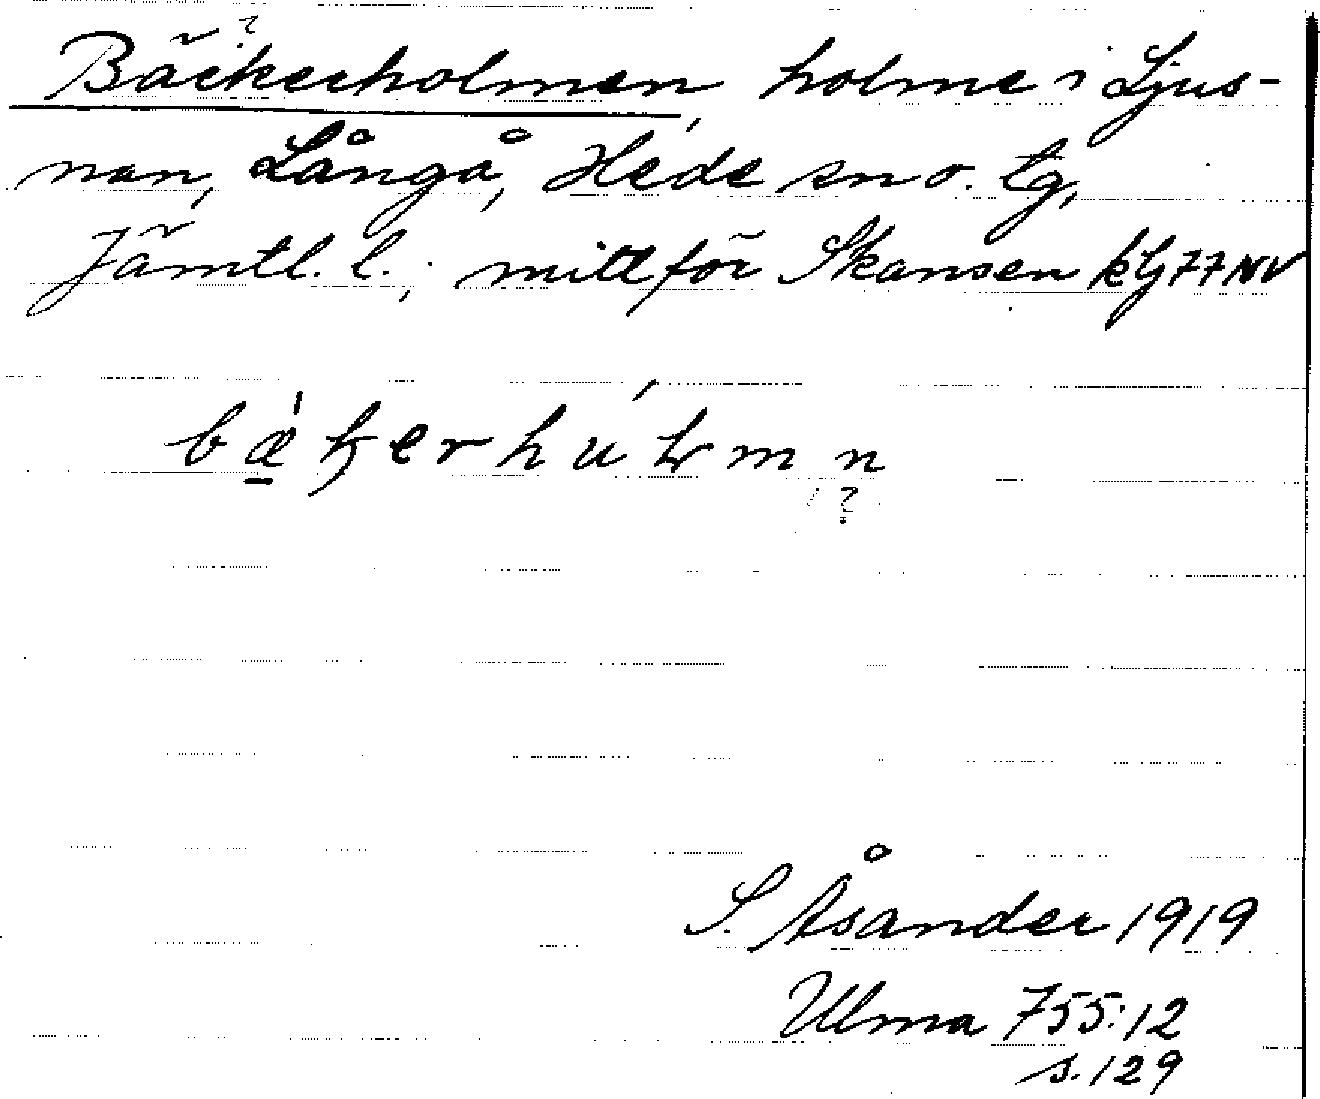 ?
Bäckerholmen, holme i Ljus-
nan, Långå, Hede sn o. tg,
Jämtl. l.; mitt för Skansen kbl 77 NV
bæ̀ʈerhúɽmn
?
S. Åsander 1919
Ulma 755:12
s. 129